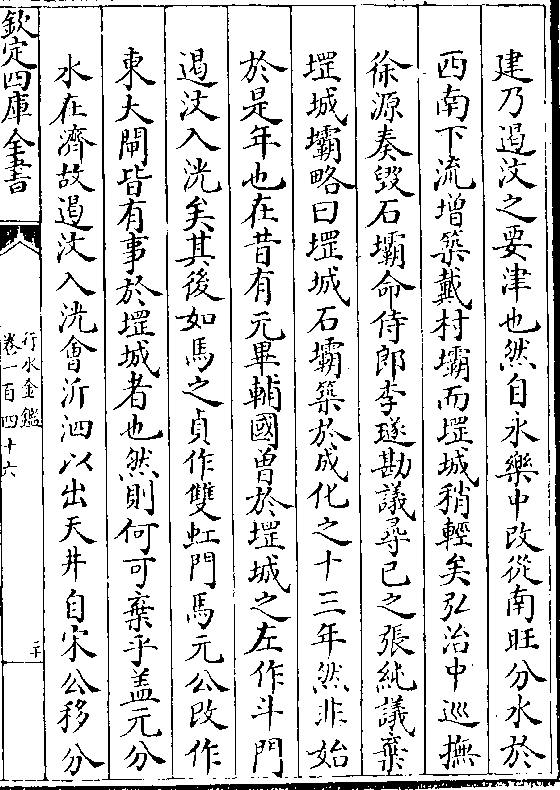 建乃遏汶之要津也然自永樂中改從南旺分水於
西南下流增築戴村壩而堽城稍輕矣弘治中巡撫
徐源奏毀石壩命侍郎李璲勘議尋已之張純議棄
堽城壩略曰堽城石壩築於成化之十三年然非始
於是年也在昔有元畢輔國曽於堽城之左作斗門
遏汶入洸矣其後如馬之貞作雙虹門馬元公改作
東大閘皆有事於堽城者也然則何可棄乎盖元分
水在濟故遏汶入洸會沂泗以出天井自宋公移分
欽定四庫全書
行水金鑑
卷一百四十六
二十